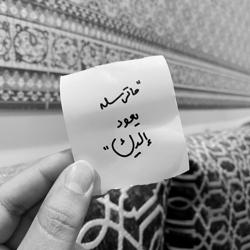 "ماترسله
يعود
إليك"